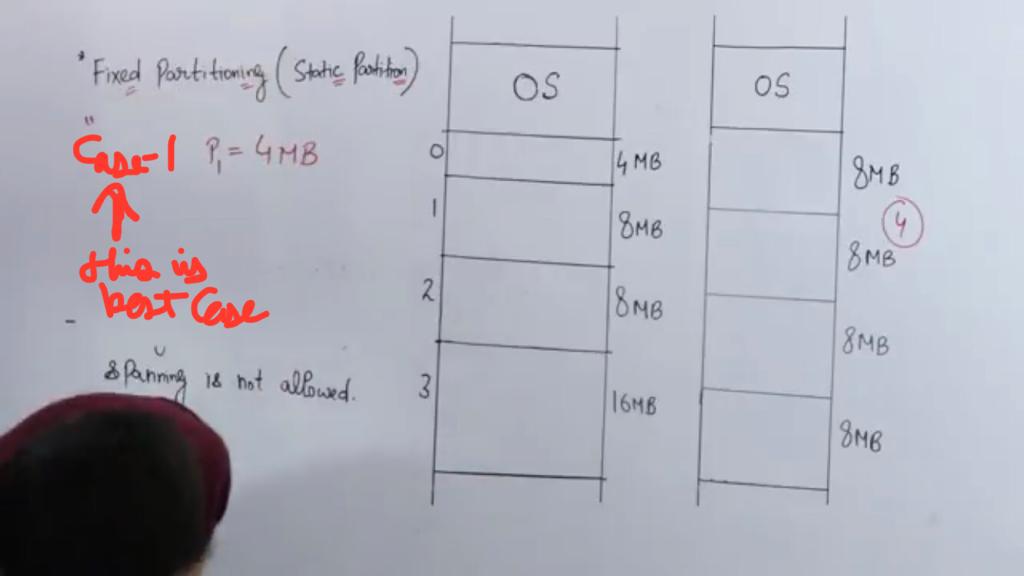 * Fixed Partitioning (Static Partition)
Case-1 P1 = 4MB
this is
best Case
spanning is not allowed.
OS
0 4MB
1 8MB
2 8MB
3 16MB
OS
8MB
4
8MB
8MB
8MB